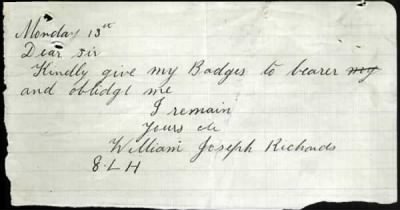 Monday 13th
Dear Sir
Kindly give my Badges to bearer
and oblidgt me
I remain
Yours etc
William Joseph Richards
8.L.H